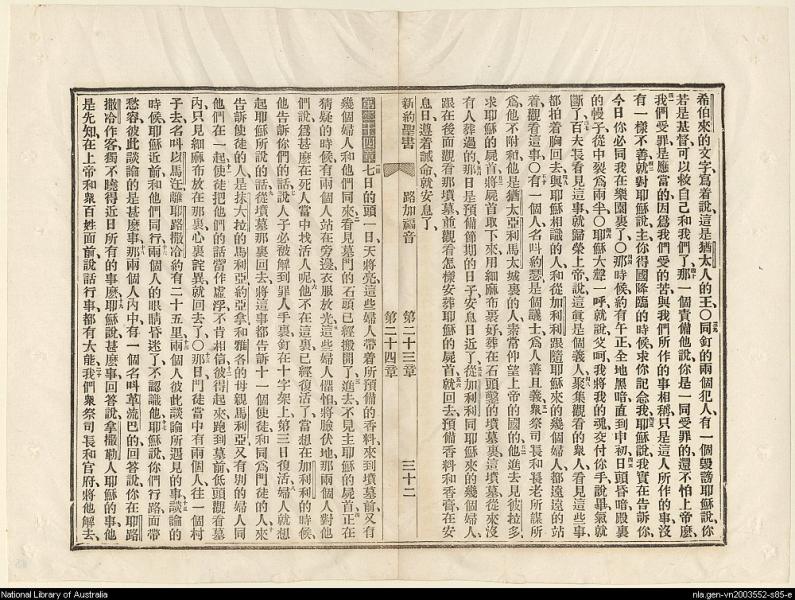 希伯來的文字寫着說這是猶太人的王○同釘的兩個犯人有一個毀謗耶穌說你
若是基督可以救自己和我們了那一個責備他說你是一同受罪的還不怕上帝麼
我們受罪是應當的因爲我們受的苦與我們所作的事相稱只是這人所作的事沒
有一樣不善就對耶穌說主你得國降臨的時候求你記念我耶穌說我實在告訴你
今日你必同我在樂園裏了○那時候約有午正全地黑暗直到申初日頭昏暗殿裏
的幔子從中裂爲兩半○耶穌大聲一呼就說父呵我將我的魂交付你手說畢氣就
斷了百夫長看見這事就歸榮上帝說這眞是個義人聚集觀看的衆人看見這些事
都拍着胸回去與耶穌相識的人和從加利利跟隨耶穌來的幾個婦人都遠遠的站
着觀看這事○有一個人名叫約瑟是個議士爲人善且義衆祭司長和長老所謀所
爲他不附和他是猶太亞利馬太城裏的人素常仰望上帝的國的他進去見彼拉多
求耶穌的屍首將屍首取下來用細麻布裹好葬在石頭鑿的墳墓裏這墳墓從來沒
有人葬過的那日是預備節期的日子安息日近了從加利利同耶穌來的幾個婦人
跟在後面觀看那墳墓並觀看怎樣安葬耶穌的屍首就回去預備香料和香膏在安
息日遵着誡命就安息了
新約聖書 路加福音 第二十三章 第二十四章 三十二
第二十四章七日的頭一日天將亮這些婦人帶着所預備的香料來到墳墓前又有
幾個婦人和他們同來看見墓門的石頭已經搬開了進去不見主耶穌的屍首正在
猜疑的時候有兩個人站在旁邊衣服放光這些婦人懼怕將臉伏地那兩個人對他
們說爲甚麼在死人當中找活人呢他不在這裏已經復活了當想在加利利的時候
他告訴你們的話說人子必被解到罪人手裏釘在十字架上第三日復活婦人就想
起耶穌所說的話從墳墓那裏回去將這事都告訴十一個使徒和同爲門徒的人來
告訴使徒的人是抹大拉的馬利亞約亞拿和雅各的母親馬利亞又有別的婦人同
他們在一起使徒把他們的話當作虛浮不肯相信彼得起來跑到墓前低頭觀看墓
內只見細麻布放在那裏心裏詫異就回去了○那日門徒當中有兩個人往一個村
子去名叫以馬忤離耶路撒冷約有二十五里兩個人彼此談論所遇見的事談論的
時候耶穌近前和他們同行兩個人的眼睛昏迷了不認識他耶穌說你們行路面帶
愁容彼此談論的是甚麼事那兩個人內中有一個名叫革流巴的回答說你在耶路
撒冷作客獨不曉得近日所有的事麼耶穌說甚麼事回答說拿撒勒人耶穌的事他
是先知在上帝和衆百姓面前說話行事都有大能我們衆祭司長和官府將他解去
National Library of Australia
nla.gen-vn2003552-s85-e